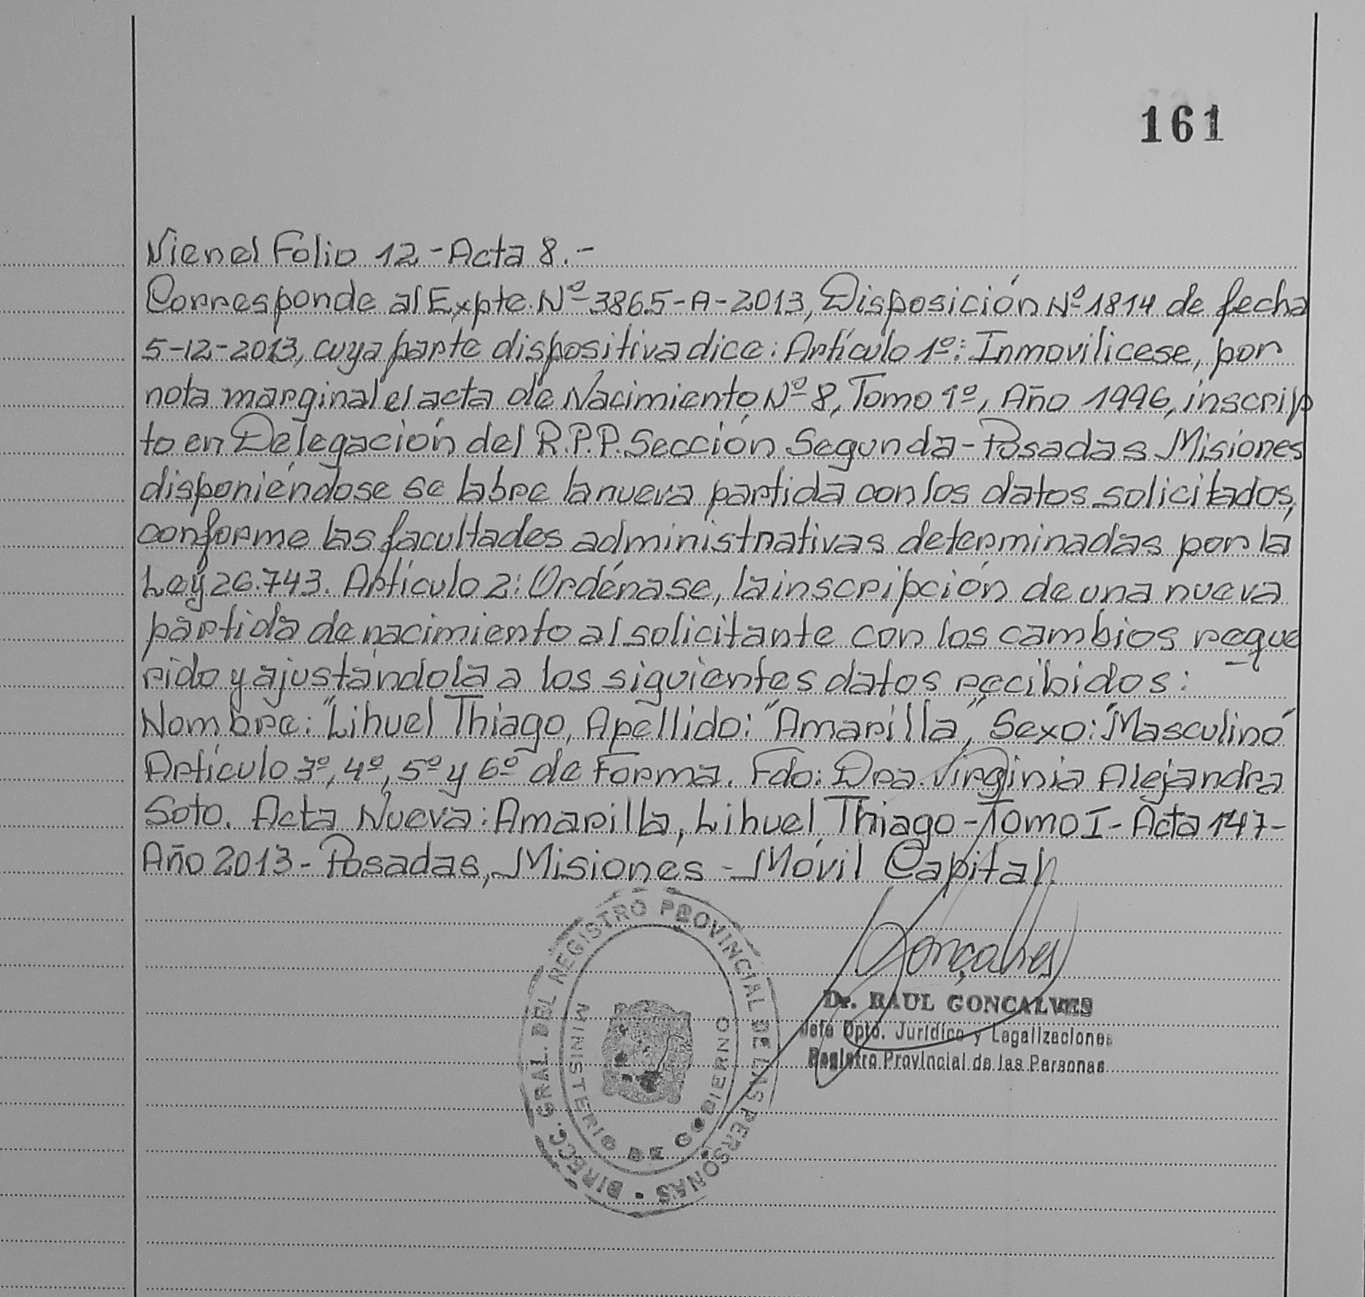 161
Viene Folio 12 - Acta 8.-
Corresponde al Expte. Nº 3865-A-2013, Disposición Nº 1814 de fecha
5-12-2013, cuya parte dispositiva dice: Artículo 1º: Inmovilicese, por
nota marginal el acta de Nacimiento Nº 8, Tomo 1º, Año 1996, inscrip
to en Delegación del R.P.P. Sección Segunda - Posadas Misiones
disponiéndose se labre la nueva partida con los datos solicitados,
conforme las facultades administrativas determinadas por la
Ley 26.743. Artículo 2: Ordénase, la inscripción de una nueva
partida de nacimiento al solicitante con los cambios reque
rido y ajustándola a los siguientes datos recibidos:
Nombre: "Lihuel Thiago, Apellido: "Amarilla", Sexo: "Masculino"
Artículo 3º, 4º, 5º y 6º de Forma. Fdo: Dra. Virginia Alejandra
Soto. Acta Nueva: Amarilla, Lihuel Thiago - Tomo I - Acta 147-
Año 2013 - Posadas, Misiones - Móvil Capital.
Gonçalves
Dr. RAUL GONCALVES
Jefe Dpto. Jurídico y Legalizaciones
Registro Provincial de las Personas
DIRECC. GRAL. DEL REGISTRO PROVINCIAL DE LAS PERSONAS
MINISTERIO DE GOBIERNO